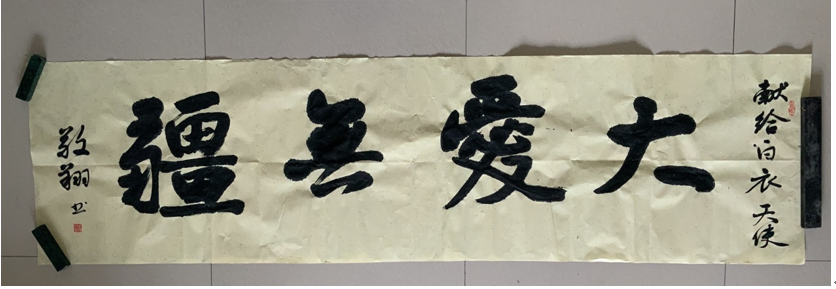 献给白衣天使
大愛無疆
敬翔书